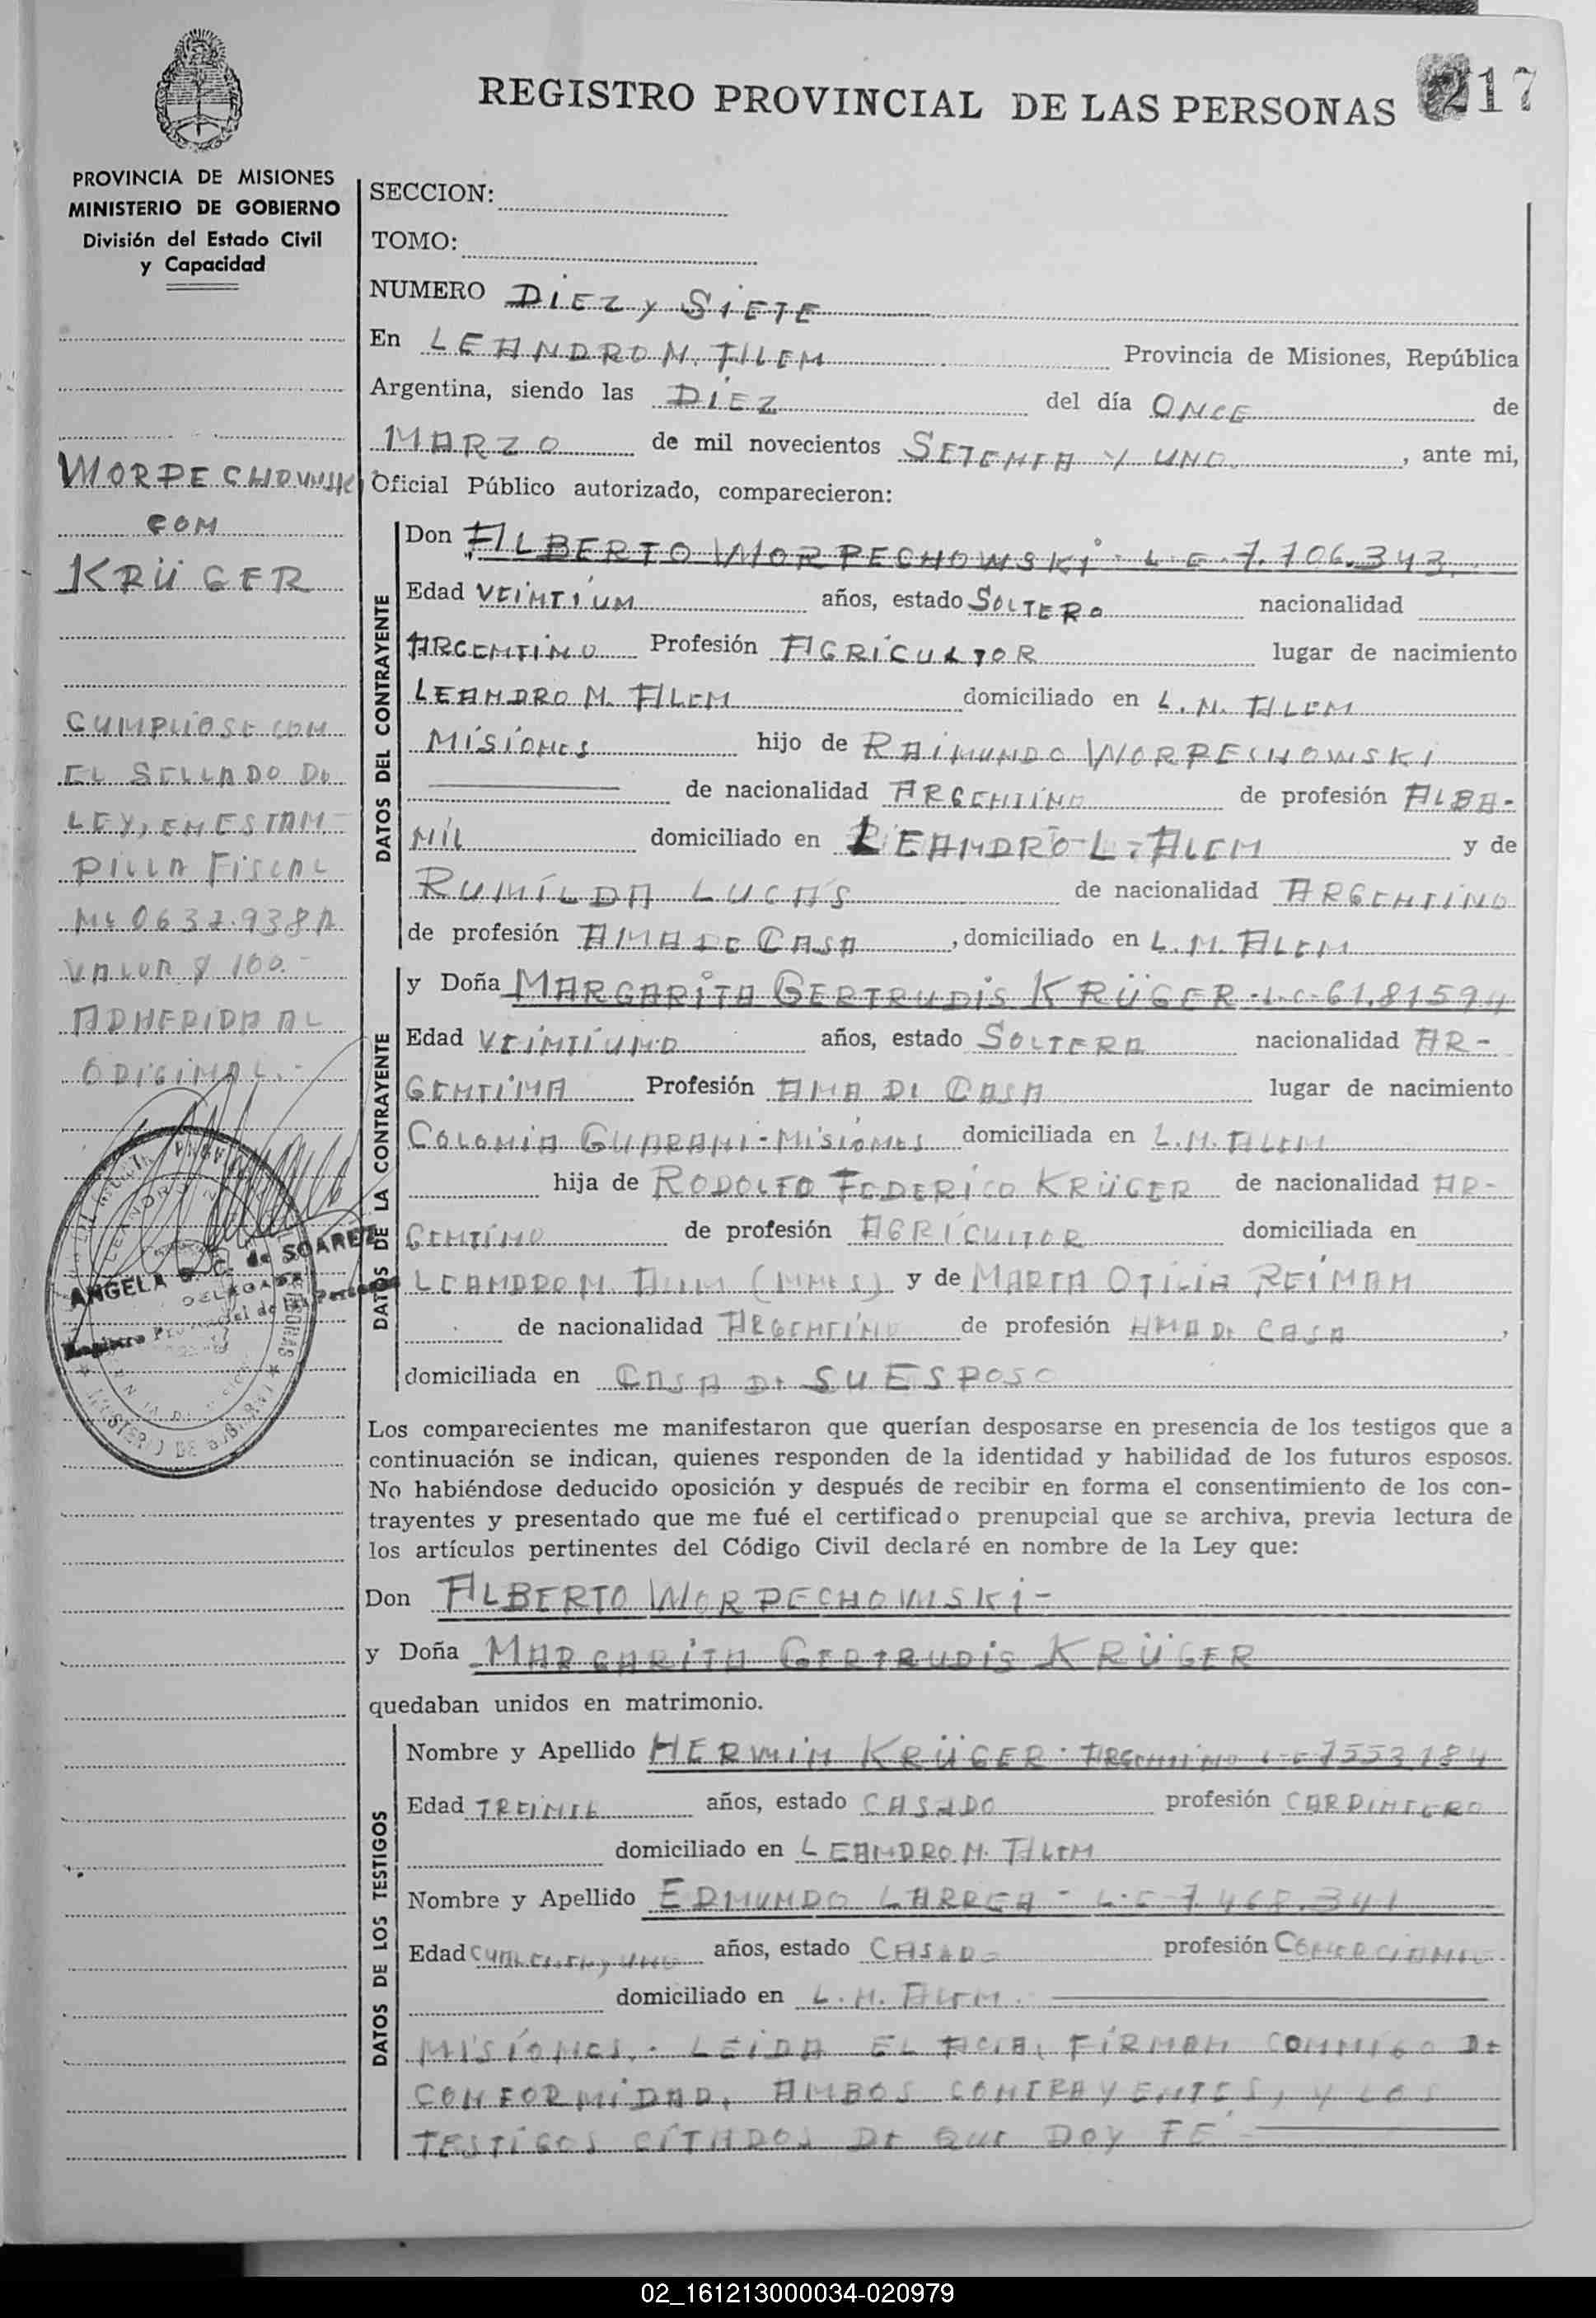 217
REGISTRO PROVINCIAL DE LAS PERSONAS
PROVINCIA DE MISIONES
MINISTERIO DE GOBIERNO
División del Estado Civil
y Capacidad
WORPECHOWSKI
CON
KRÜGER
CUMPLIOSE CON
EL SELLADO DE
LEY, EN ESTAM-
PILLA FISCAL
Nº 0637.938A
VALOR $ 100.-
ADHERIDA AL
ORIGINAL.-
ANGELA S. C. de SOAREZ
DELEGADA
Registro Provincial de las Personas
SECCION:
TOMO:
NUMERO DIEZ Y SIETE
En LEANDRO N. ALEM Provincia de Misiones, República
Argentina, siendo las DIEZ del día ONCE de
MARZO de mil novecientos SETENTA Y UNO. , ante mi,
Oficial Público autorizado, comparecieron:
DATOS DEL CONTRAYENTE
Don ALBERTO WORPECHOWSKI - L-E-7.706.343.
Edad VEINTIUN años, estado SOLTERO nacionalidad
ARGENTINO Profesión AGRICULTOR lugar de nacimiento
LEANDRO N. ALEM domiciliado en L. N. ALEM
MISIONES hijo de RAIMUNDO WORPECHOWSKI
de nacionalidad ARGENTINO de profesión ALBA-
ÑIL domiciliado en LEANDRO-L-ALEM y de
RUMILDA LUCAS de nacionalidad ARGENTINO
de profesión AMA DE CASA , domiciliado en L. N. ALEM
DATOS DE LA CONTRAYENTE
y Doña MARGARITA GERTRUDIS KRÜGER-L-C-6.1.81594
Edad VEINTIUNO años, estado SOLTERA nacionalidad AR-
GENTINA Profesión AMA DE CASA lugar de nacimiento
COLONIA GUARANI-MISIONES domiciliada en L. N. ALEM
hija de RODOLFO FEDERICO KRÜGER de nacionalidad AR-
GENTINO de profesión AGRICULTOR domiciliada en
LEANDRO N. ALEM (MNES) y de MARTA OTILIA REIMAN
de nacionalidad ARGENTINO de profesión AMA DE CASA ,
domiciliada en CASA DE SU ESPOSO
Los comparecientes me manifestaron que querían desposarse en presencia de los testigos que a
continuación se indican, quienes responden de la identidad y habilidad de los futuros esposos.
No habiéndose deducido oposición y después de recibir en forma el consentimiento de los con-
trayentes y presentado que me fué el certificado prenupcial que se archiva, previa lectura de
los artículos pertinentes del Código Civil declaré en nombre de la Ley que:
Don ALBERTO WORPECHOWSKI-
y Doña MARGARITA GERTRUDIS KRÜGER
quedaban unidos en matrimonio.
DATOS DE LOS TESTIGOS
Nombre y Apellido HERWIN KRÜGER - ARGENTINO L-E-7553184
Edad años, estado CASADO profesión CARPINTERO
domiciliado en LEANDRO N. ALEM
Nombre y Apellido EDMUNDO LARREA - L-E-7.468.341
Edad CUARENTA Y UNO años, estado CASADO profesión COMERCIANTE
domiciliado en L. N. ALEM.
MISIONES.- LEIDA EL ACTA, FIRMAN CONMIGO DE
CONFORMIDAD, AMBOS CONTRAYENTES, Y LOS
TESTIGOS CITADOS DE QUE DOY FE.
02_161213000034-020979